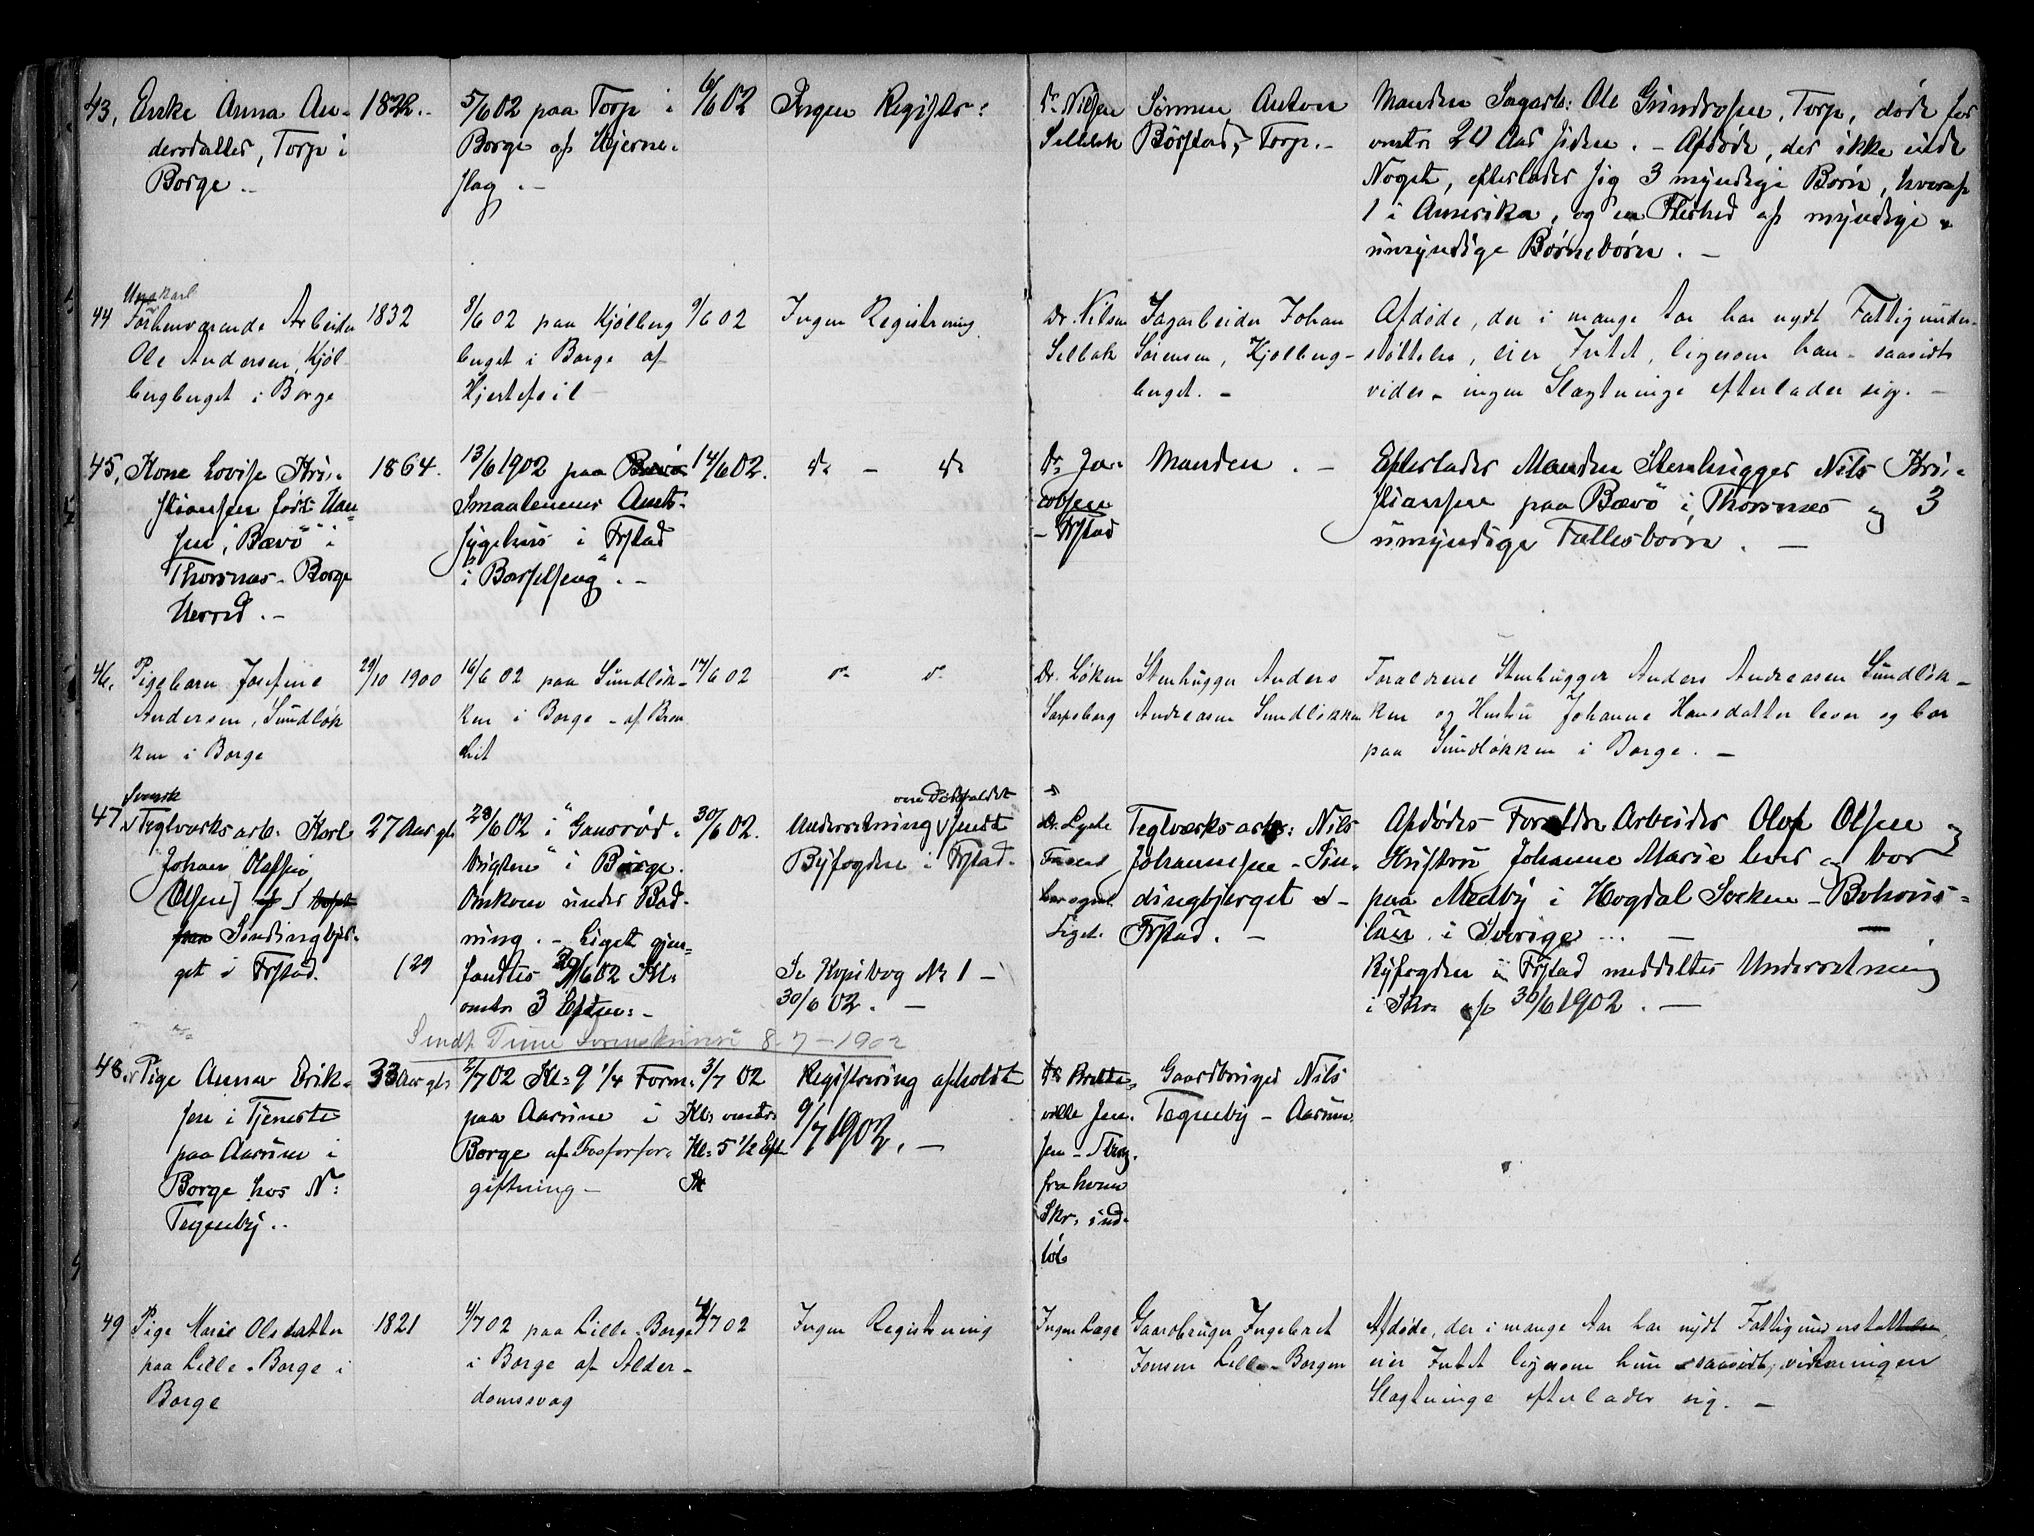 43. Enke Anna An-
dersdatter, Torp i
Borge. –
1822.
5/6 02 paa Torp i
Borge af Hjerne-
slag. –
6/6 02
Ingen Registr:
Dr. Nilsen
Sellebk
Sørensen Anton
Børstad, Torp. –
Manden Sagarb: Ole Gundersen, Torp, døde for
omtr. 20 Aar siden. – Afdøde, der ikke eiede
Noget, efterlader sig 3 myndige Børn, hvoraf
1 i Amerika, og en Flerhed af myndige &
umyndige Børnebørn. –
44
Ungkarl
Forhenværende Arbeider
Ole Andersen, Kjøl
bergberget i Borge
1832
8/6 02 paa Kjølberg
berget i Borge af
Hjertefeil –
9/6 02
Ingen Registrering
Dr. Nilsen
Sellebk
Sagarbeider Johan
Sørensen, Kjølberg-
berget. –
Afdøde, der i mange Aar har nydt Fattigunder-
støttelse, eier Intet, ligesom han – saavidt
vides – ingen Slægtninge efterlader sig. –
45. Kone Lovise Kri-
stiansen født Han-
sen, "Bævø" i
Thorsnæs – Borge
Herred. –
1864.
13/6 1902 paa
Smaalenenes Amts-
sygehus i Frstad
i "Barselseng". –
14/6 02.
do – do
Dr. Ja-
cobsen
– Frstad
Manden. –
Efterlader Manden Stenhugger Nils Kri-
stiansen paa Bævø i Thorsnæs og 3
umyndige Fællesbørn. –
46. Pigebarn Josefine
Andersen, Sundløk
ken i Borge
29/10 1900
16/6 02 paa Sundløk-
ken i Borge – af Bron
chit
17/6 02
do do
Dr. Løken
Sarpsborg
Stenhugger Anders
Andreasen Sundløkken
Forældrene Stenhugger Anders Andreasen Sundløk-
ken og Hustru Johanne Hansdatter lever og bor
paa Sundløkken i Borge. –
47
Svensk
Teglværksarb. Karl
Johan Olafsen
(Olsen)
Sindingbjer-
get i Frstad.
27 Aar gl.
129
28/6 02 i "Gansrød-
bugten" i Borge.
Omkom under Bad-
ning. – Liget gjen-
fandtes 29/6 02 Kl:
omtr 3 Efterm: –
30/6 02.
om Dødsfaldet
Underretning sendt
Byfogden i Frstad.
Se Kopibog No 1 –
30/6 02. –
Dr. Lyche
har synet
Liget.
Teglværksarb: Nils
Johannesen – Sin-
dingbjerget –
Frstad. –
Afdødes Forældre Arbeider Olof Olsen og
Hustru Johanne Marie lever og bor
paa Medby i Hogdal Socken – Bohus-
län i Sverige. –
Byfogden i Frstad meddeltes Underretning
i Skr. af 30/6 1902. –
Sendt Tune Sorenskriveri 8-7-1902
48. Pige Anna Erik-
sen i Tjeneste
paa Aarum i
Borge hos N:
Tegneby. –
33 Aar gl.
2/7 02 Kl: 9 1/4 Form:
paa Aarum i
Borge af Fosforfor-
giftning –
3/7 02
Kl: omtr.
Kl: 5 1/2 Eft
Registrering afholdt
9/7 1902. –
Dr. Brette-
ville Jen-
sen –
fra hvem
Skr. ind-
løb
Gaardbruger Nils
Tegneby – Aarum.
49 Pige Marie Olsdatter
paa Lille-Borge i
Borge
1821
4/7 02 paa Lille-Borge
i Borge af Alder-
domssvag
4/7 02
Ingen Registrering
Ingen Læge
Gaardbruger Ingebret
Jensen Lille-Borgen
Afdøde, der i mange Aar har nydt Fattigunderstøttelse,
eier Intet ligesom hun – saavidt vides – ingen
Slægtninge efterlader sig. –